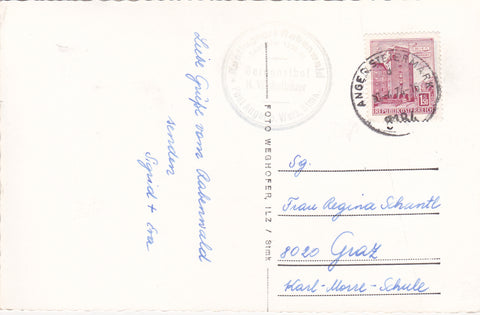 Liebe Grüße vom Rabenwald
senden
Sigrid + Eva
FOTO WEGHOFER, ILZ / Stmk
Rabenwald
ANGER, STEIERMARK
8184
REPUBLIK ÖSTERREICH
1.50
Sg.
Frau Regina Schantl
8020 Graz
Karl-Morre-Schule